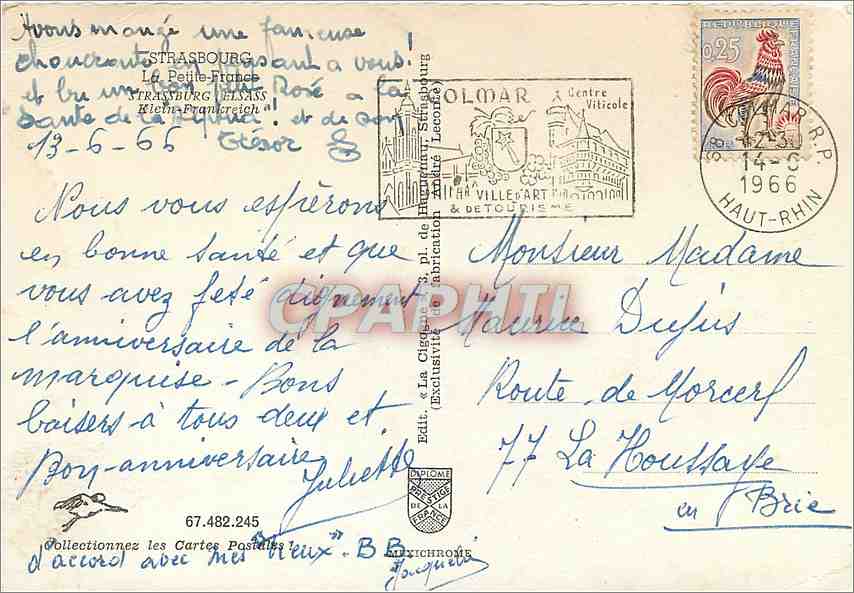 Avons mangé une fameuse
choucroute en pensant a vous!
et bu un bon petit Rosé a la
Santé de la et de son
13-6-66 trésor
STRASBOURG
La Petite-France
STRASSBURG ELSASS
Klein-Frankreich
Nous vous espérons
en bonne santé et que
vous avez feté dignement
l'anniversaire de la
marquise - Bons
baisers à tous deux et
Bon-anniversaire
Juliette
67.482.245
Collectionnez les Cartes Postales!
d'accord avec mes "Vieux" - BB
Jacqueline
Edit. « La Cigogne », 3, pl. de Strasbourg
(Exclusivité de fabrication André Leconte)
DIPLOME
PRESTIGE
DE LA
FRANCE
MEXICHROME
COLMAR
Centre
Viticole
VILLE D'ART
& DE TOURISME
REPUBLIQUE FRANÇAISE
0,25
COLMAR R.P.
14-6
1966
HAUT-RHIN
Monsieur Madame
Maurice Dufus
Route de Morcerf
77 La Houssaye
en Brie
CPAPHIL